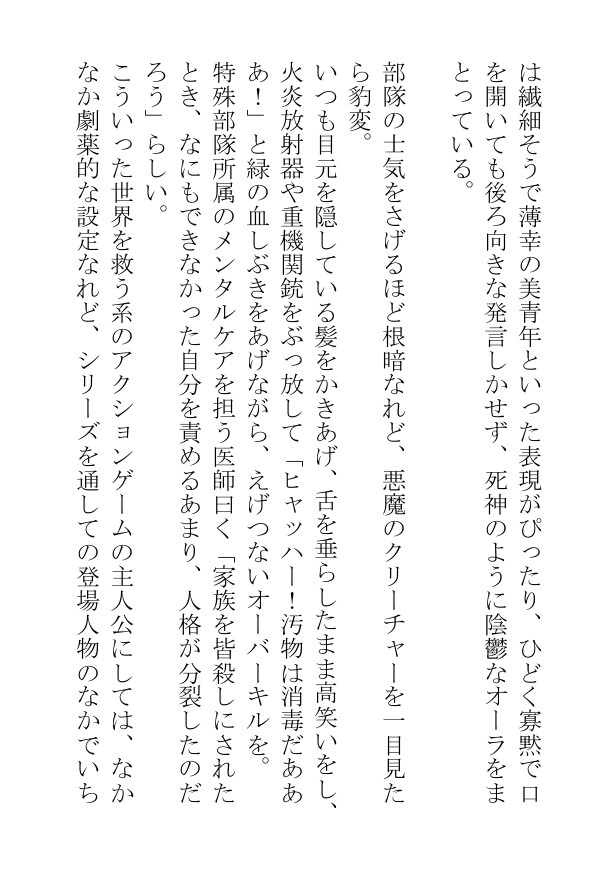 は繊細そうで薄幸の美青年といった表現がぴったり、ひどく寡黙で口
を開いても後ろ向きな発言しかせず、死神のように陰鬱なオーラをま
とっている。
部隊の士気をさげるほど根暗なれど、悪魔のクリーチャーを一目見た
ら豹変。
いつも目元を隠している髪をかきあげ、舌を垂らしたまま高笑いをし、
火炎放射器や重機関銃をぶっ放して「ヒャッハー！汚物は消毒だああ
あ！」と緑の血しぶきをあげながら、えげつないオーバーキルを。
特殊部隊所属のメンタルケアを担う医師曰く「家族を皆殺しにされた
とき、なにもできなかった自分を責めるあまり、人格が分裂したのだ
ろう」らしい。
こういった世界を救う系のアクションゲームの主人公にしては、なか
なか劇薬的な設定なれど、シリーズを通しての登場人物のなかでいち